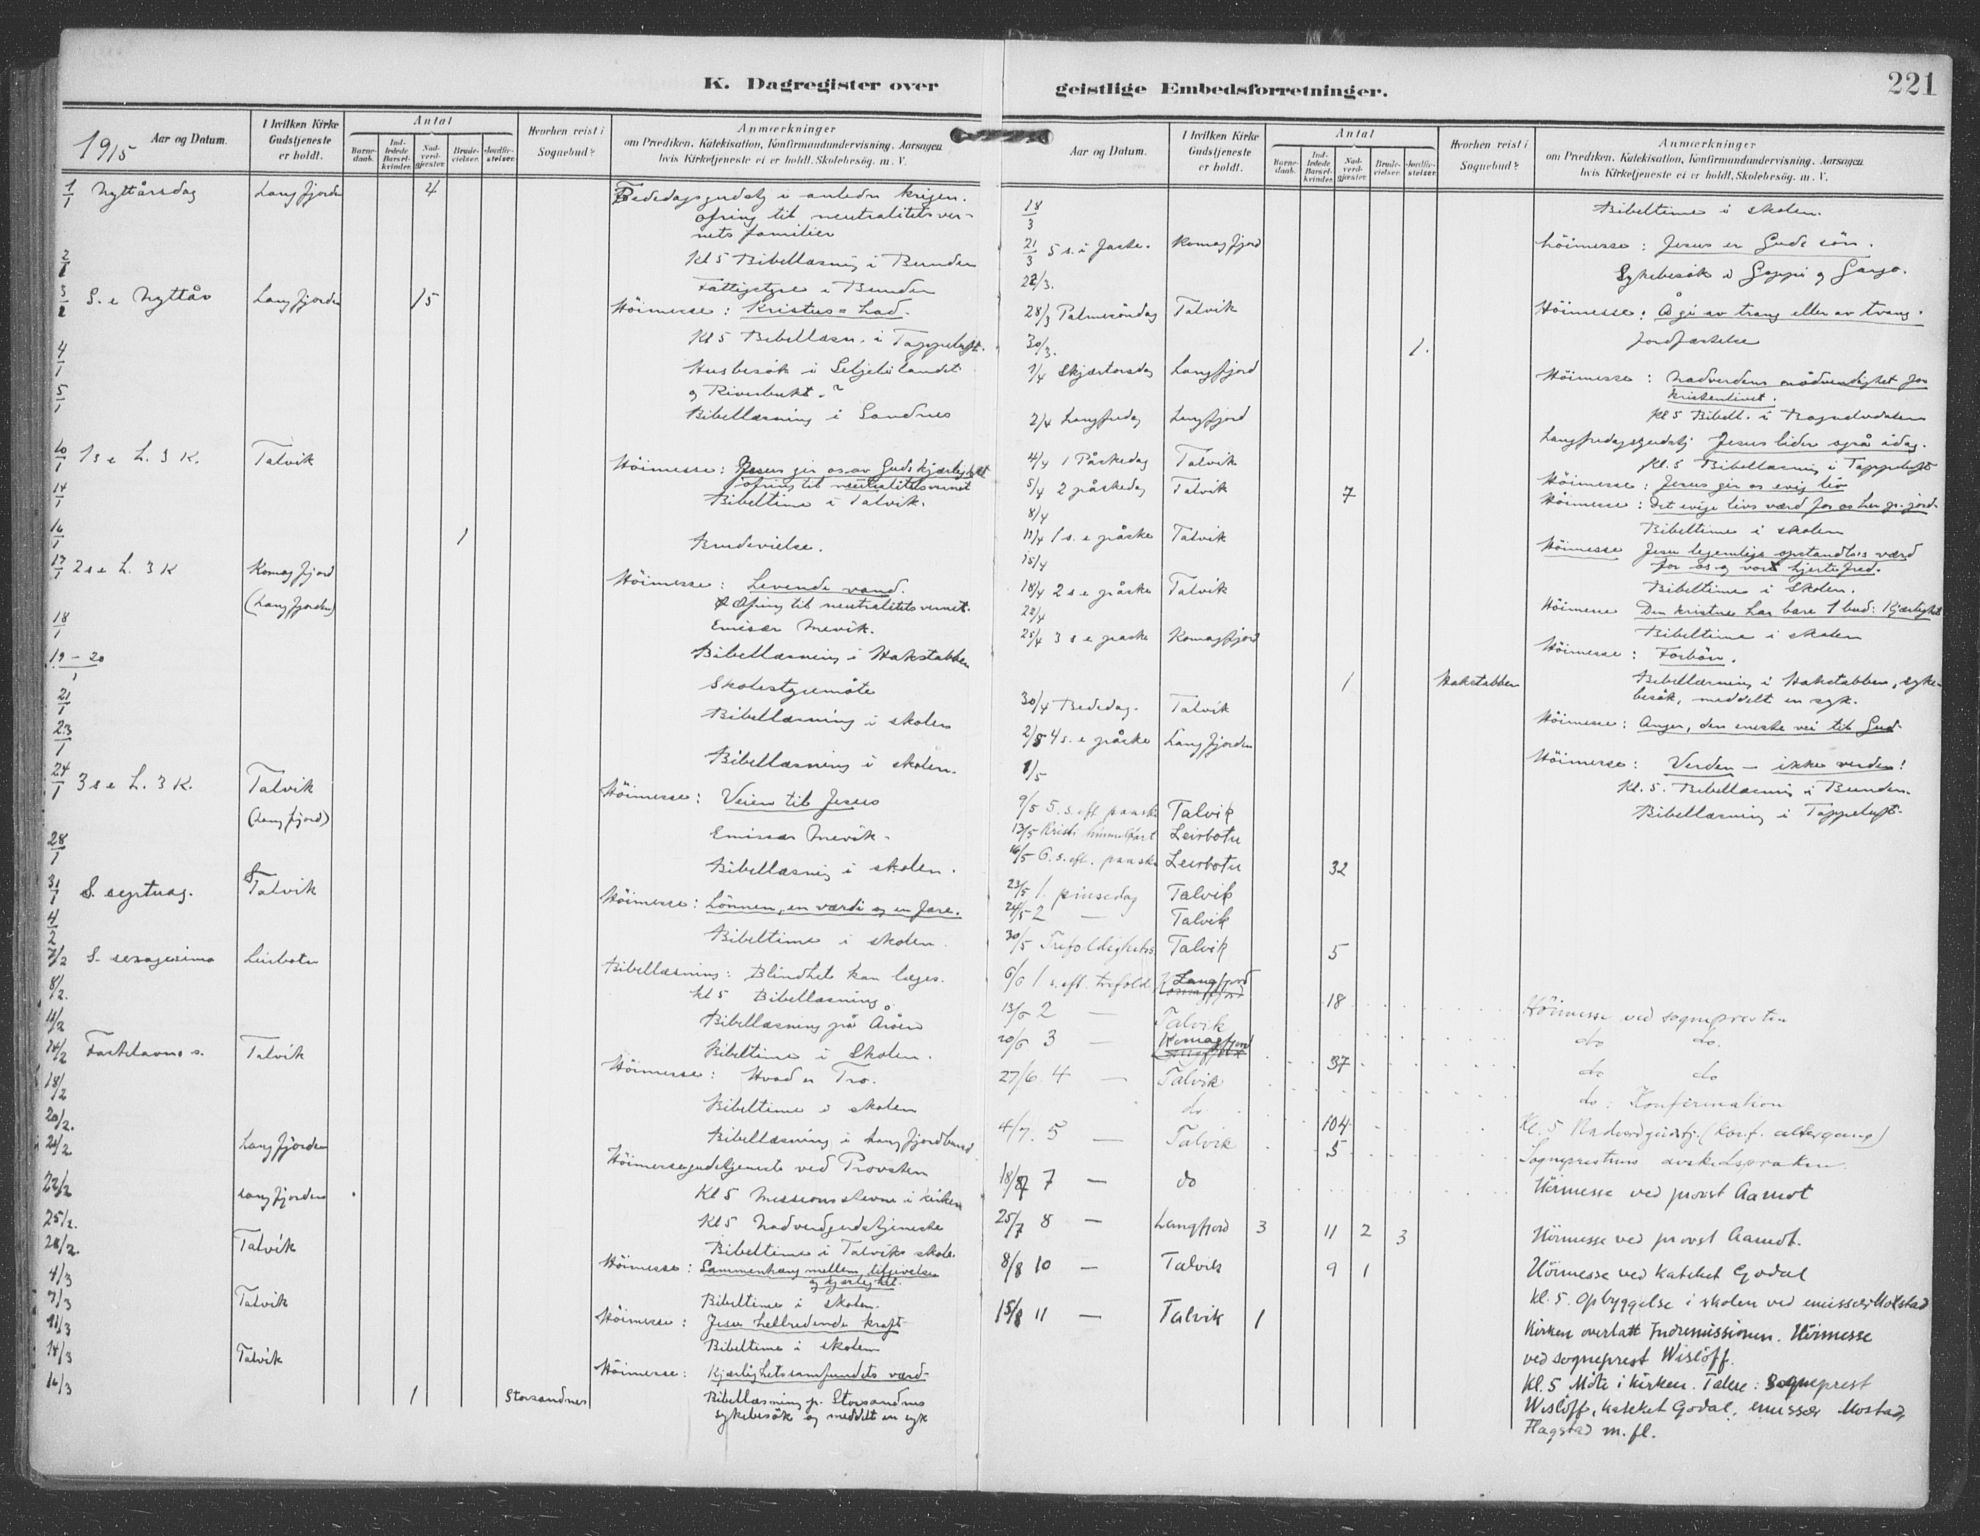 K. Dagregister over
geistlige Embedsforretninger.
221
1915
Aar og Datum.
I hvilken Kirke Gudstjeneste er holdt.
Antal
Barnedaab.
Indledede Barselkvinder.
Nadverdgjester.
Brudevielser.
Jordfæstelser.
Hvorhen reist i Sognebud?
Anmærkninger
om Prædiken, Katekisation, Konfirmandundervisning, Aarsagen
hvis Kirketjeneste ei er holdt, Skolebesøg. m. V.
1/1 Nyttårsdag Langfjorden 4 Bededagsgudstj i anledn krigen.
ofring til neutralitetsver-
nets familier
2/1 Kl 5 Bibellæsning i Bunden
Fattigstyre i Bunden
3/1 S. e Nyttår Langfjorden 15 Höimesse: Kristus = Lad.
Kl 5 Bibellæsn. i Tappeluft.
4/1 Husbesök i Seljelilandet
og Riverbukt.
5/1 Bibellæsning i Sandnes
10/1 1 s e h. 3 K. Talvik Höimesse: Jesus gir os av Guds kjærlighet
ofring til neutralitetsvernet
14/1 Bibeltime i Talvik.
16/1 1 Brudevielse.
17/1 2 s e h. 3 K Komagfjord Höimesse: Levende vand.
(Langfjorden) Ofring til neutralitetsvernet.
Emissær Mevik.
18/1 Bibellæsning i Hakstabben
19-20/1 Skolestyremöte
21/1 Bibellæsning i skolen
23/1 Bibellæsning i skolen.
24/1 3 s e h. 3 K. Talvik Höimesse: Veien til Jesus
(Langfjord) Emissær Mevik.
28/1 Bibellæsning i skolen.
31/1 S. septuag. Talvik Höimesse: Lönnen, en værdi og en fare.
4/2 Bibeltime i skolen.
7/2 S. sexagesima Leirbotn Bibellæsning: Blindhet kan læges.
Kl 5 Bibellæsning.
8/2. Bibellæsning på Årøen
11/2 Bibeltime i Skolen.
14/2 Fastelavns s. Talvik Höimesse: Hvad er Tro.
18/2 Bibeltime i skolen
20/2. Bibellæsning i Langfjordbund
21/2 Langfjorden Höimessegudstjeneste ved Provsten
Kl 5 Missionsstevne i kirken
22/2 Langfjorden Kl 5 Nadverdgudstjeneste
25/2. Bibeltime i Talvik skole.
28/2. Talvik Höimesse: Sammenhæng mellem tilgivelse
og kjærlighet
4/3 Bibeltime i skolen.
7/3 Talvik Höimesse: Jesu helbredende kraft
11/3 Bibeltime i skolen
14/3 Talvik Höimesse: Kjærlighetssamfundets værd-
16/3 1 Storsandnes Bibellæsning p. Storsandnes
sykebesök og meddelt en syk
Aar og Datum.
I hvilken Kirke Gudstjeneste er holdt.
Antal
Barnedaab.
Indledede Barselkvinder.
Nadverdgjester.
Brudevielser.
Jordfæstelser.
Hvorhen reist i Sognebud?
Anmærkninger
om Prædiken, Katekisation, Konfirmandundervisning, Aarsagen
hvis Kirketjeneste ei er holdt, Skolebesøg. m. V.
18/3 Bibeltime i skolen.
21/3 5 s. i faste. Komagfjord Höimesse: Jesus er Guds sön.
22/3. Sykebesök i
28/3 Palmesöndag Talvik Höimesse: Å gi av trang eller av tvang.
30/3. 1. Jordfæstelse
1/4 Skjærtorsdag Langfjord Höimesse: Nadverdens nödvendighet for
kristenlivet.
Kl 5 Bibell. i Bognelvdalen
2/4 Langfredag Langfjord Langfredagsgudstj Jesus lider også idag.
Kl. 5 Bibellæsning i Tappeluft
4/4 1 Påskedag Talvik Höimesse: Jesus gir os evig liv
5/4 2 påskedag Talvik 7 Höimesse: Det evige livs værd for os her p. jord.
8/4 Bibeltime i skolen
11/4 1 s. e påske Talvik Höimesse Jesu legemlige opstandelses værd
for os og vort hjertefred.
15/4 Bibeltime i Skolen.
18/4 2 s e påske Talvik Höimesse Den kristne har bare 1 bud: Kjærlighet
22/4 Bibeltime i skolen
25/4 3 s e påske Komagfjord Höimesse: Forbön.
1 Hakstabben Bibellæsning i Hakstabben, syke-
besök, meddelt en syk.
30/4 Bededag. Talvik Höimesse: Anger, den eneste vei til Gud.
2/5 4 s. e påske Langfjorden Höimesse: Verden — ikke verden!
Kl. 5. Bibellæsning i Bunden.
1/5 Bibellæsning i Tappeluft.
9/5 5. s. eft paaske Talvik
13/5 Kristi himmelfart Leirbotn
16/5 6. s. eft. paaske Leirbotn 32
23/5 1. pinsedag Talvik
24/5 2 — Talvik
30/5 Trefoldighets. Talvik 5
6/6 1 s. eft. trefold. Langfjord 18 Höimesse ved sognepresten
13/6 2 — Talvik do do.
20/6 3 — Komagfjord 37 do do
27/6 4 — Talvik do: Konfirmation
do 104 Kl. 5 Nadverdgudstj. (konf. altergang)
4/7. 5 — Talvik 5 Sogneprestens avskedspræken.
18/7 7 — do Höimesse ved provst Aamot
25/7 8 — Langfjord 3 11 2 3 Höimesse ved provst Aamot.
8/8 10 — Talvik 9 1 Höimesse ved kateket Godal
Kl. 5. Opbyggelse i skolen ved emissær Mostad
15/8 11 — Talvik 1 Kirken overlatt Indremissionen. Höimesse
ved sogneprest Wislöff.
Kl. 5 Möte i kirken. Talere: Sogneprest
Wislöff, kateket Godal, emissær Mostad,
Flagstad m. fl.